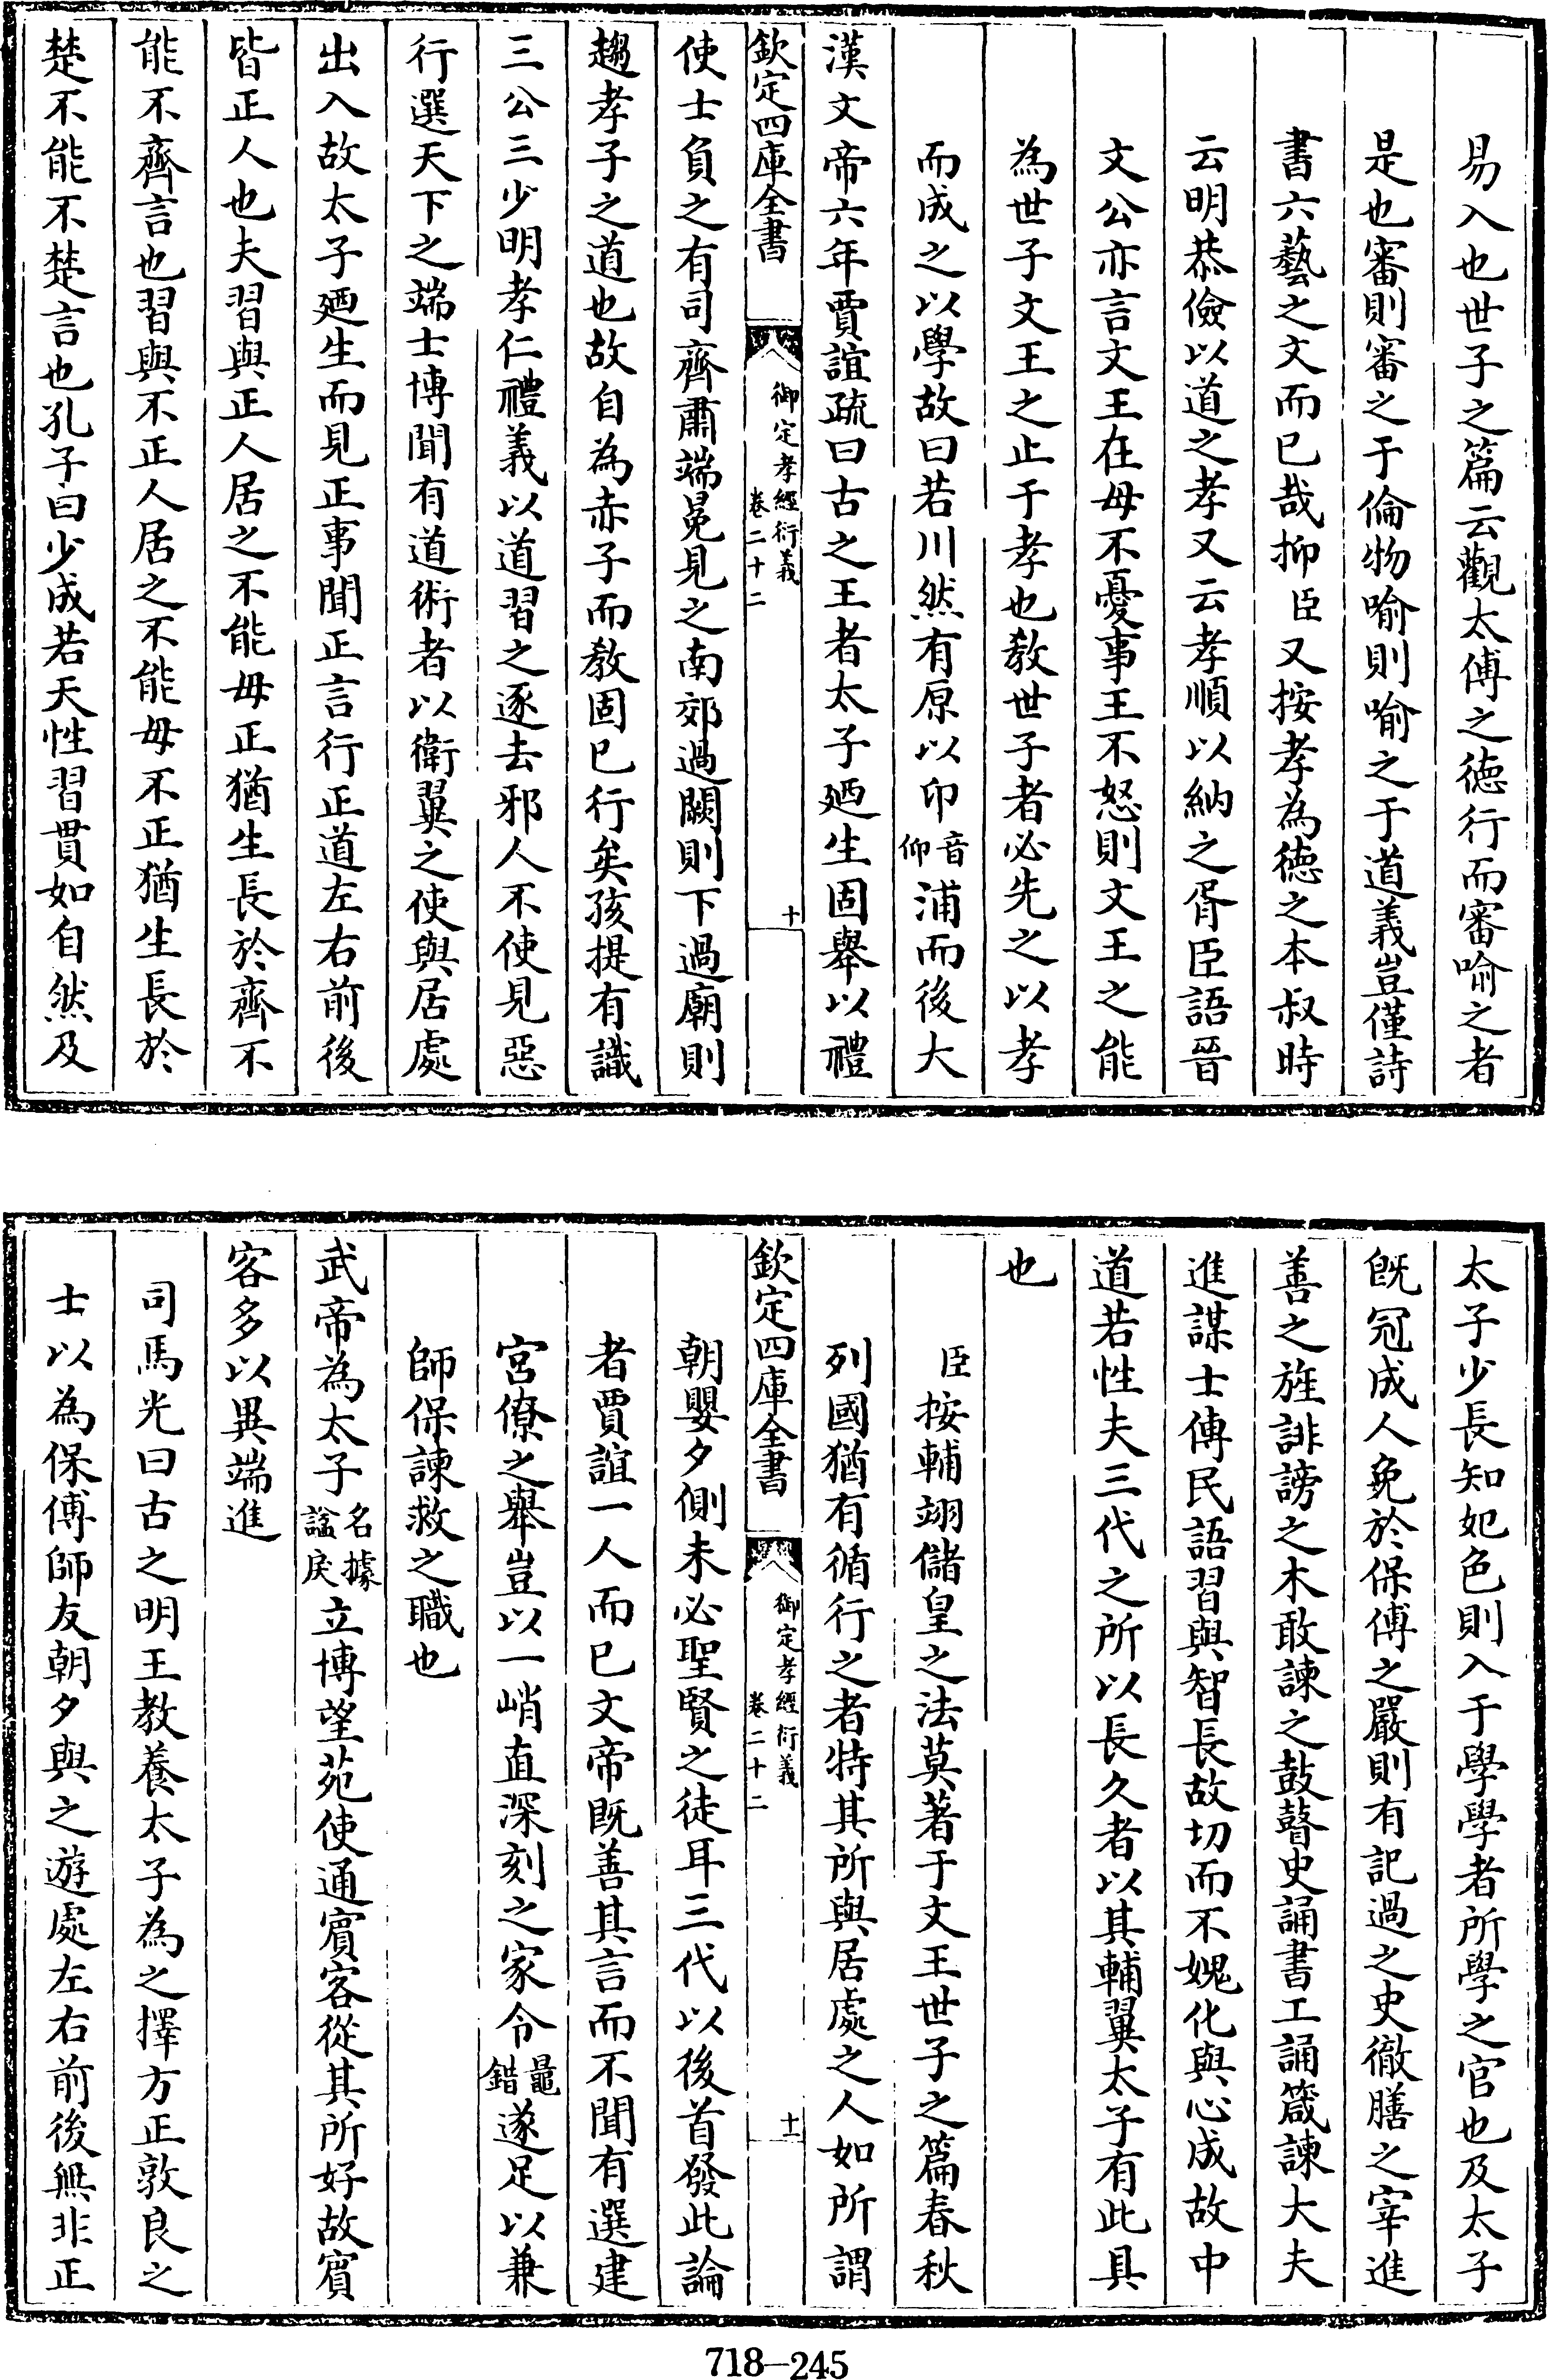 易入也世子之篇云觀太傅之德行而審喻之者
是也審則審之于倫物喻則喻之于道義豈僅詩
書六藝之文而已哉抑臣又按孝為德之本叔時
云明恭儉以道之孝又云孝順以納之胥臣語晉
文公亦言文王在母不憂事王不怒則文王之能
為世子文王之止于孝也教世子者必先之以孝
而成之以學故曰若川然有原以卬音仰浦而後大
漢文帝六年賈誼疏曰古之王者太子廼生固舉以禮
欽定四庫全書 御定孝經衍義 卷二十二 十
使士負之有司齊肅端冕見之南郊過闕則下過廟則
趨孝子之道也故自為赤子而教固已行矣孩提有識
三公三少明孝仁禮義以道習之逐去邪人不使見惡
行選天下之端士博聞有道術者以衛翼之使與居處
出入故太子廼生而見正事聞正言行正道左右前後
皆正人也夫習與正人居之不能毋正猶生長於齊不
能不齊言也習與不正人居之不能毋不正猶生長於
楚不能不楚言也孔子曰少成若天性習貫如自然及
太子少長知妃色則入于學學者所學之官也及太子
旣冠成人免於保傅之嚴則有記過之史徹膳之宰進
善之旌誹謗之木敢諫之鼓瞽史誦書工誦箴諫大夫
進謀士傳民語習與智長故切而不媿化與心成故中
道若性夫三代之所以長久者以其輔翼太子有此具
也
臣按輔翊儲皇之法莫著于文王世子之篇春秋
列國猶有循行之者特其所與居處之人如所謂
欽定四庫全書 御定孝經衍義 卷二十二 十一
朝嬰夕側未必聖賢之徒耳三代以後首發此論
者賈誼一人而已文帝旣善其言而不聞有選建
宮僚之舉豈以一峭直深刻之家令鼂錯遂足以兼
師保諫救之職也
武帝為太子名據諡戾立博望苑使通賓客從其所好故賓
客多以異端進
司馬光曰古之明王教養太子為之擇方正敦良之
士以為保傅師友朝夕與之遊處左右前後無非正
718—245